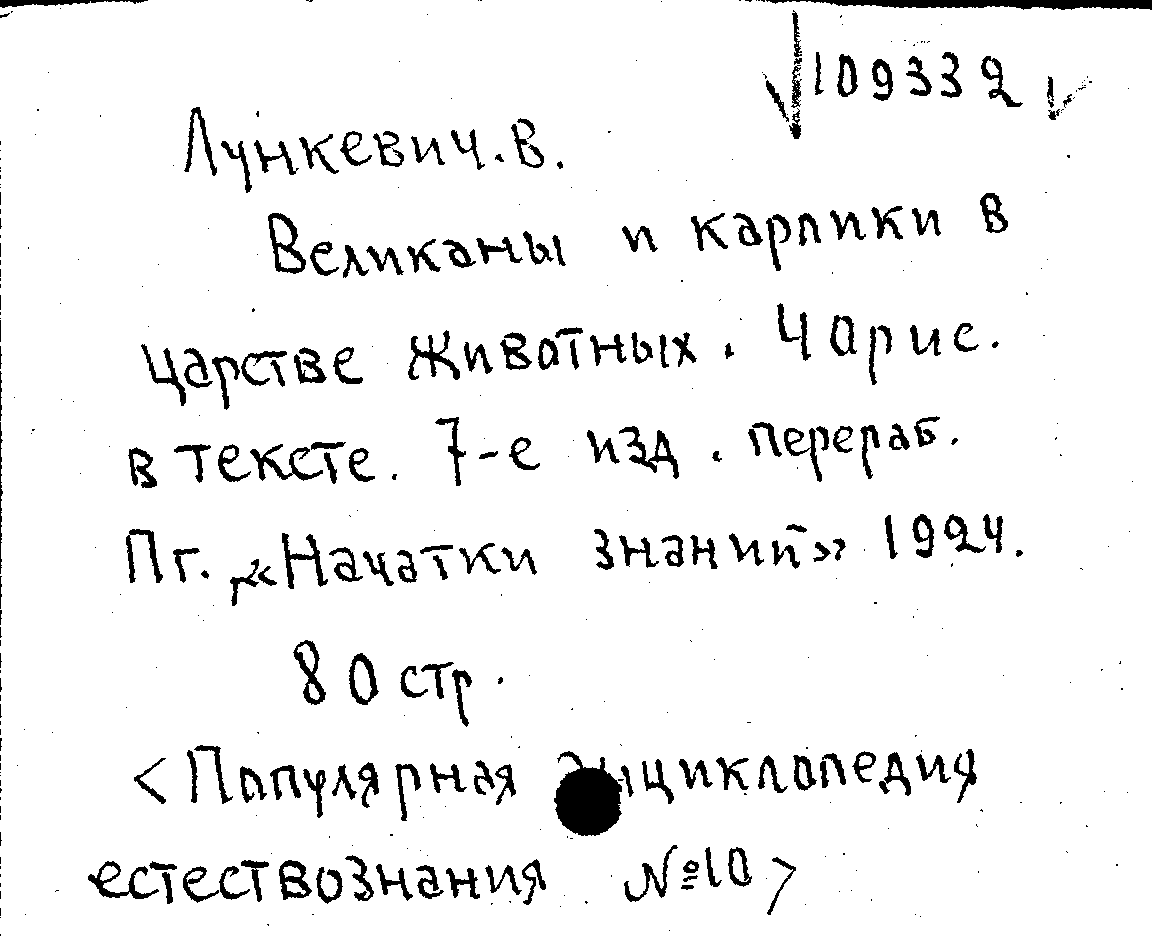 109332
Лункевич. В.
Великаны и карлики в
царстве животных. 40 рис.
в тексте. 7-е изд. перераб.
Пг. «Начатки знаний» 1924.
80 стр.
<Популярная энциклопедия
естествознания №10>